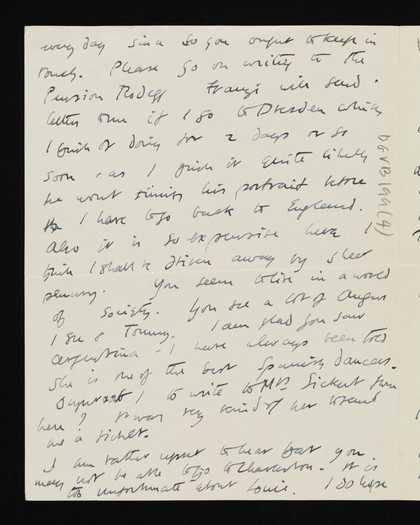 every day since so you ought to keep in
touch. Please go on writing to the
Pension Franzi will send
letters on if I go to Dresden which
I think of doing for 2 days or so
soon, as I think it quite likely
he wont finish his portrait before
I have to go back to England.
Also it is so expensive here I
think I shall be driven away by sheer
penury. You seem to live in a world
of Society. You see a lot of Angus
I see & Tommy. I am glad you saw
Argentina - I have always been told
she is one of the best Spanish dancers.
Ought I to write to Mrs Sickert from
here? It was very kind of her to send
me a ticket.
I am rather upset to hear that you
may not be able to go to Charleston. It is
unfortunate about Louie. I do hope
DGVB199(4)